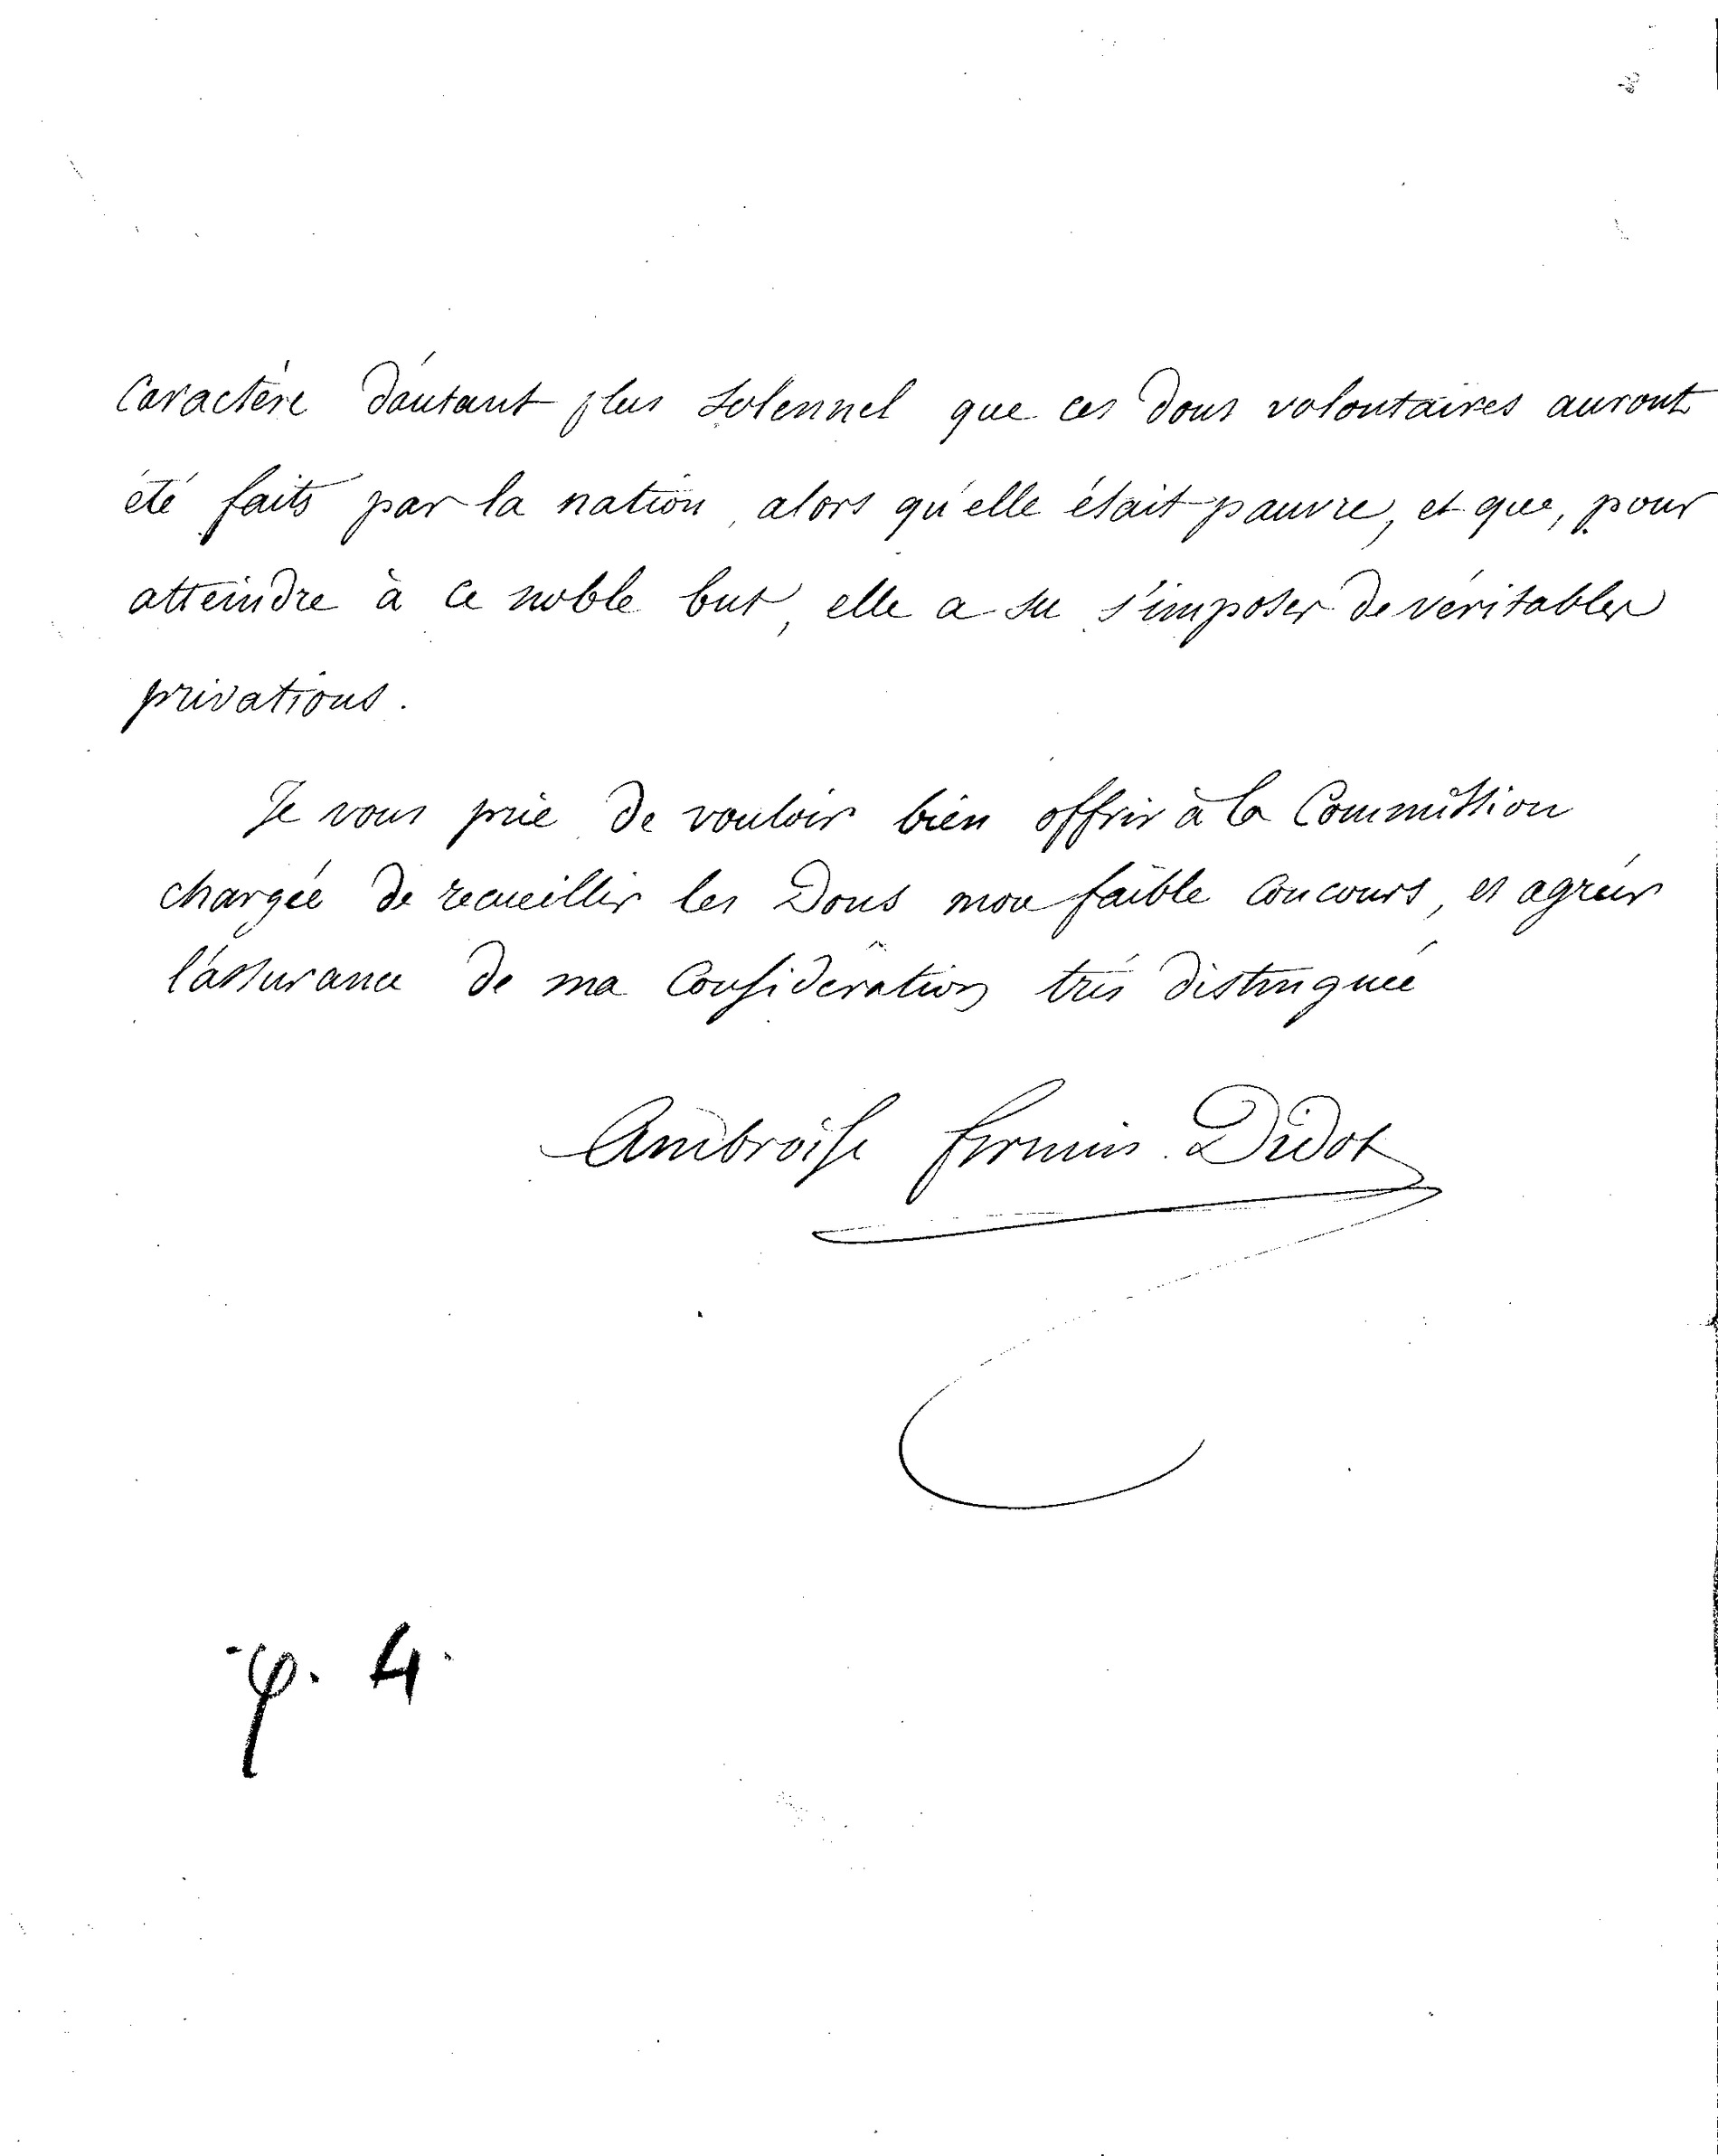 Caractère d'autant plus solennel que ces dons volontaires auront
été faits par la nation, alors qu'elle était pauvre, et que, pour
atteindre à ce noble but, elle a su s'imposer de véritables
privations.
Je vous prie de vouloir bien offrir à la Commission
chargée de recueillir les Dons mon faible concours, et agréer
l'assurance de ma Considération très distinguée
Ambroise Firmin Didot
4.